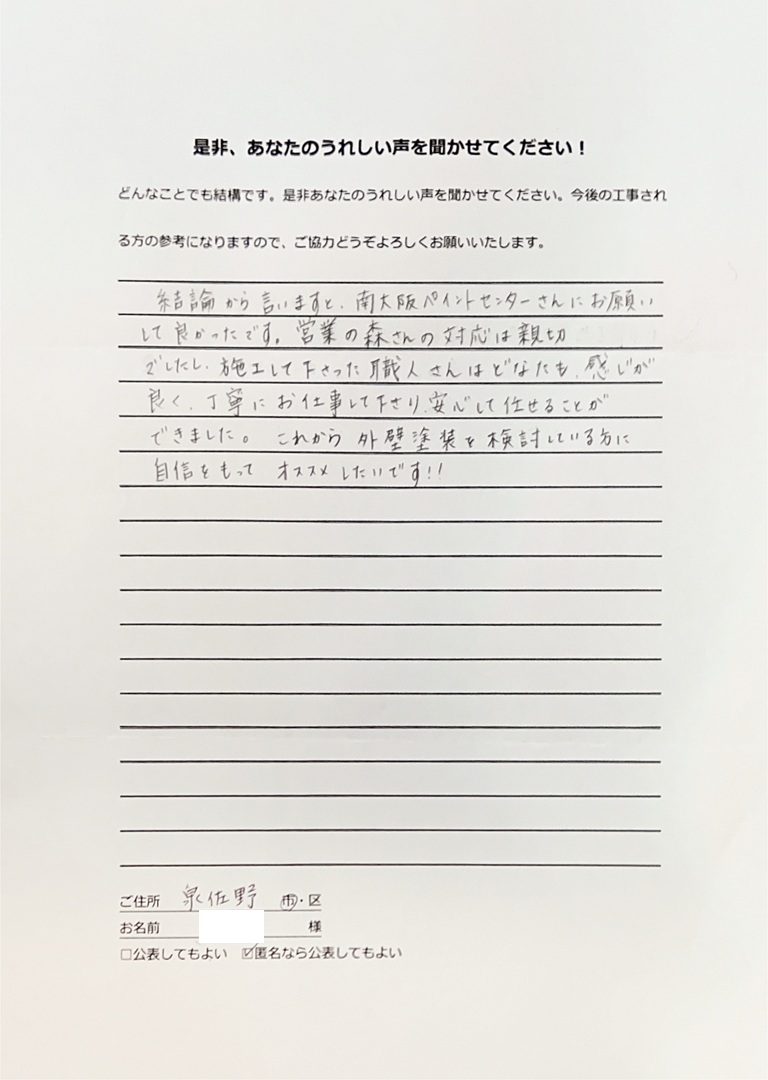 是非、あなたのうれしい声を聞かせてください！
どんなことでも結構です。是非あなたのうれしい声を聞かせてください。今後の工事され
る方の参考になりますので、ご協力どうぞよろしくお願いいたします。
結論から言いますと、南大阪ペイントセンターさんにお願い
して良かったです。営業の森さんの対応は親切
でしたし、施工して下さった職人さんはどなたも、感じが
良く、丁寧にお仕事して下さり、安心して任せることが
できました。これから外壁塗装を検討している方に
自信をもってオススメしたいです!!
ご住所 泉佐野 市・区
お名前 様
□公表してもよい ☑匿名なら公表してもよい